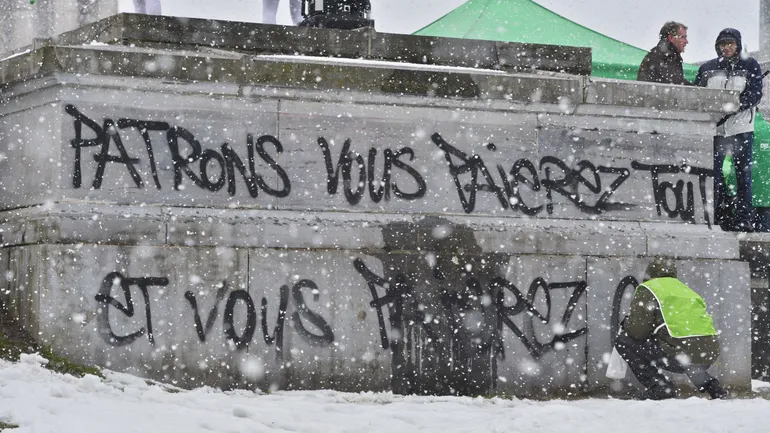 PATRONS VOUS PAiEREZ TOUT
ET VOUS PAiEREZ